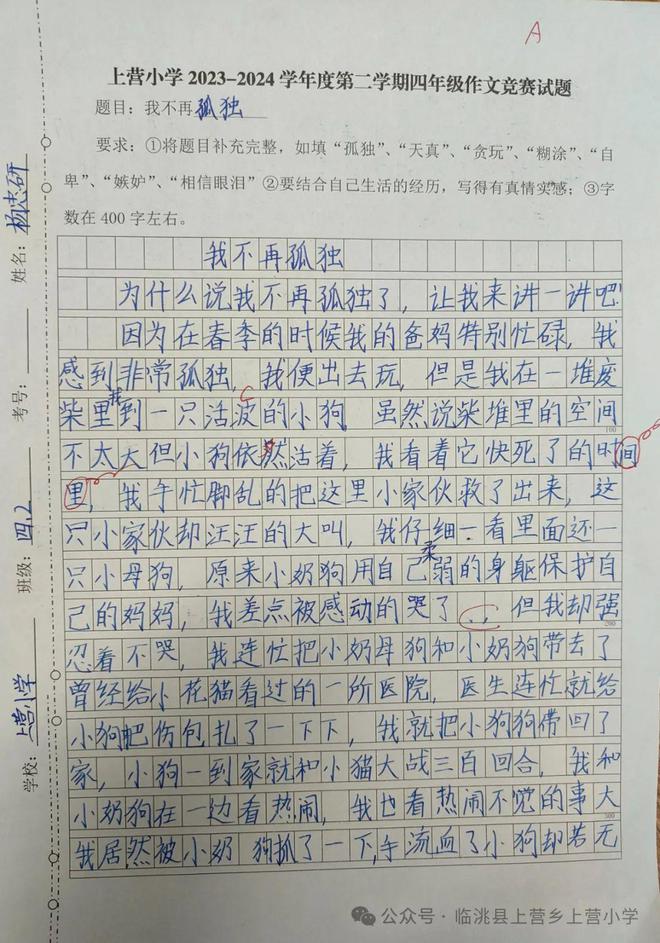 A
上营小学 2023-2024 学年度第二学期四年级作文竞赛试题
题目：我不再孤独
要求：①将题目补充完整，如填“孤独”、“天真”、“贪玩”、“糊涂”、“自
卑”、“嫉妒”、“相信眼泪”②要结合自己生活的经历，写得有真情实感；③字
数在 400 字左右。
学校：上营小学 班级：四.2 考号： 姓名：杨志研
我不再孤独
为什么说我不再孤独了，让我来讲一讲吧！
因为在春季的时候我的爸妈特别忙碌，我
感到非常孤独，我便出去玩，但是我在一堆废
柴里我到一只活波的小狗 虽然说柴堆里的空间
100
不太大但小狗依然活着，我看着它快死了的时间
里，我手忙脚乱的把这里小家伙救了出来，这
只小家伙却汪汪的大叫，我仔细一看里面还一
只小母狗，原来小奶狗用自己柔弱的身躯保护自
己的妈妈，我差点被感动的哭了，但我却强
200
忍着不哭，我连忙把小奶母狗和小奶狗带去了
曾经给小花猫看过的一所医院，医生连忙就给
小狗把伤包扎了一下下，我就把小狗狗带回了
家，小狗一到家就和小猫大战三百回合，我和
小奶狗在一边看热闹，我也看热闹不觉的事大
300
我居然被小奶狗抓了一下，手流血了小狗却若无
公众号·临洮县上营乡上营小学